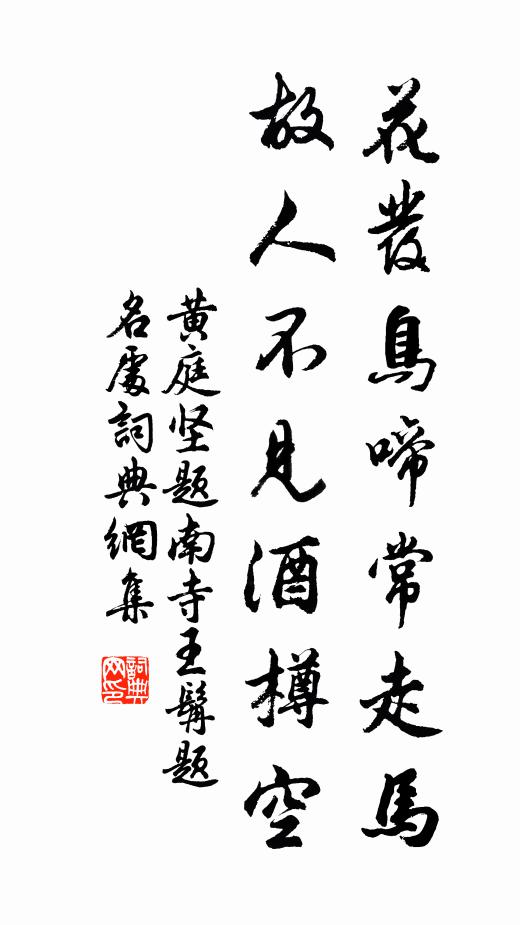 花發鳥啼常走馬
故人不見酒樽空
黄庭坚题南寺王髯题
名處詞典網集
詞典网